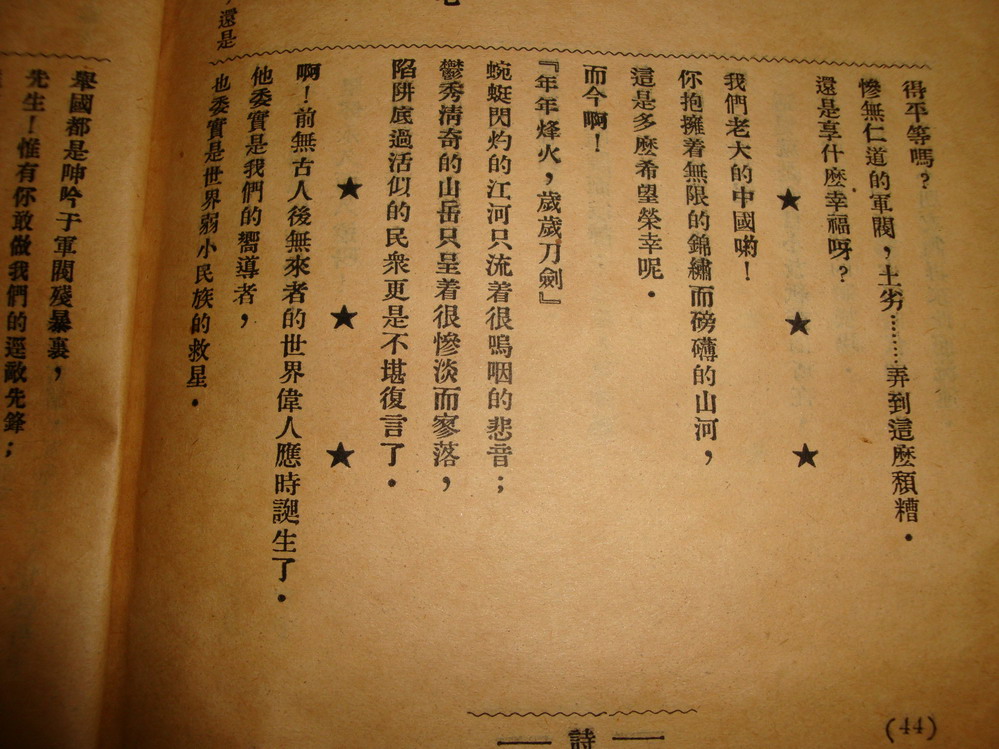 得平等嗎？
慘無仁道的軍閥，土劣………弄到這麼頹糟．
還是享什麼幸福呀？
★ ★ ★
我們老大的中國喲！
你抱擁着無限的錦繡而磅礴的山河，
這是多麼希望榮幸呢．
而今啊！
『年年烽火，歲歲刀劍』
蜿蜒閃灼的江河只流着很嗚咽的悲音；
鬱秀清奇的山岳只呈着很慘淡而寥落，
陷阱底過活似的民衆更是不堪復言了．
★ ★ ★
啊！前無古人後無來者的世界偉人應時誕生了．
他委實是我們的嚮導者，
也委實是世界弱小民族的救星．
還是
舉國都是呻吟于軍閥殘暴裏，
先生！惟有你敢做我們的逕敵先鋒；
詩
(44)